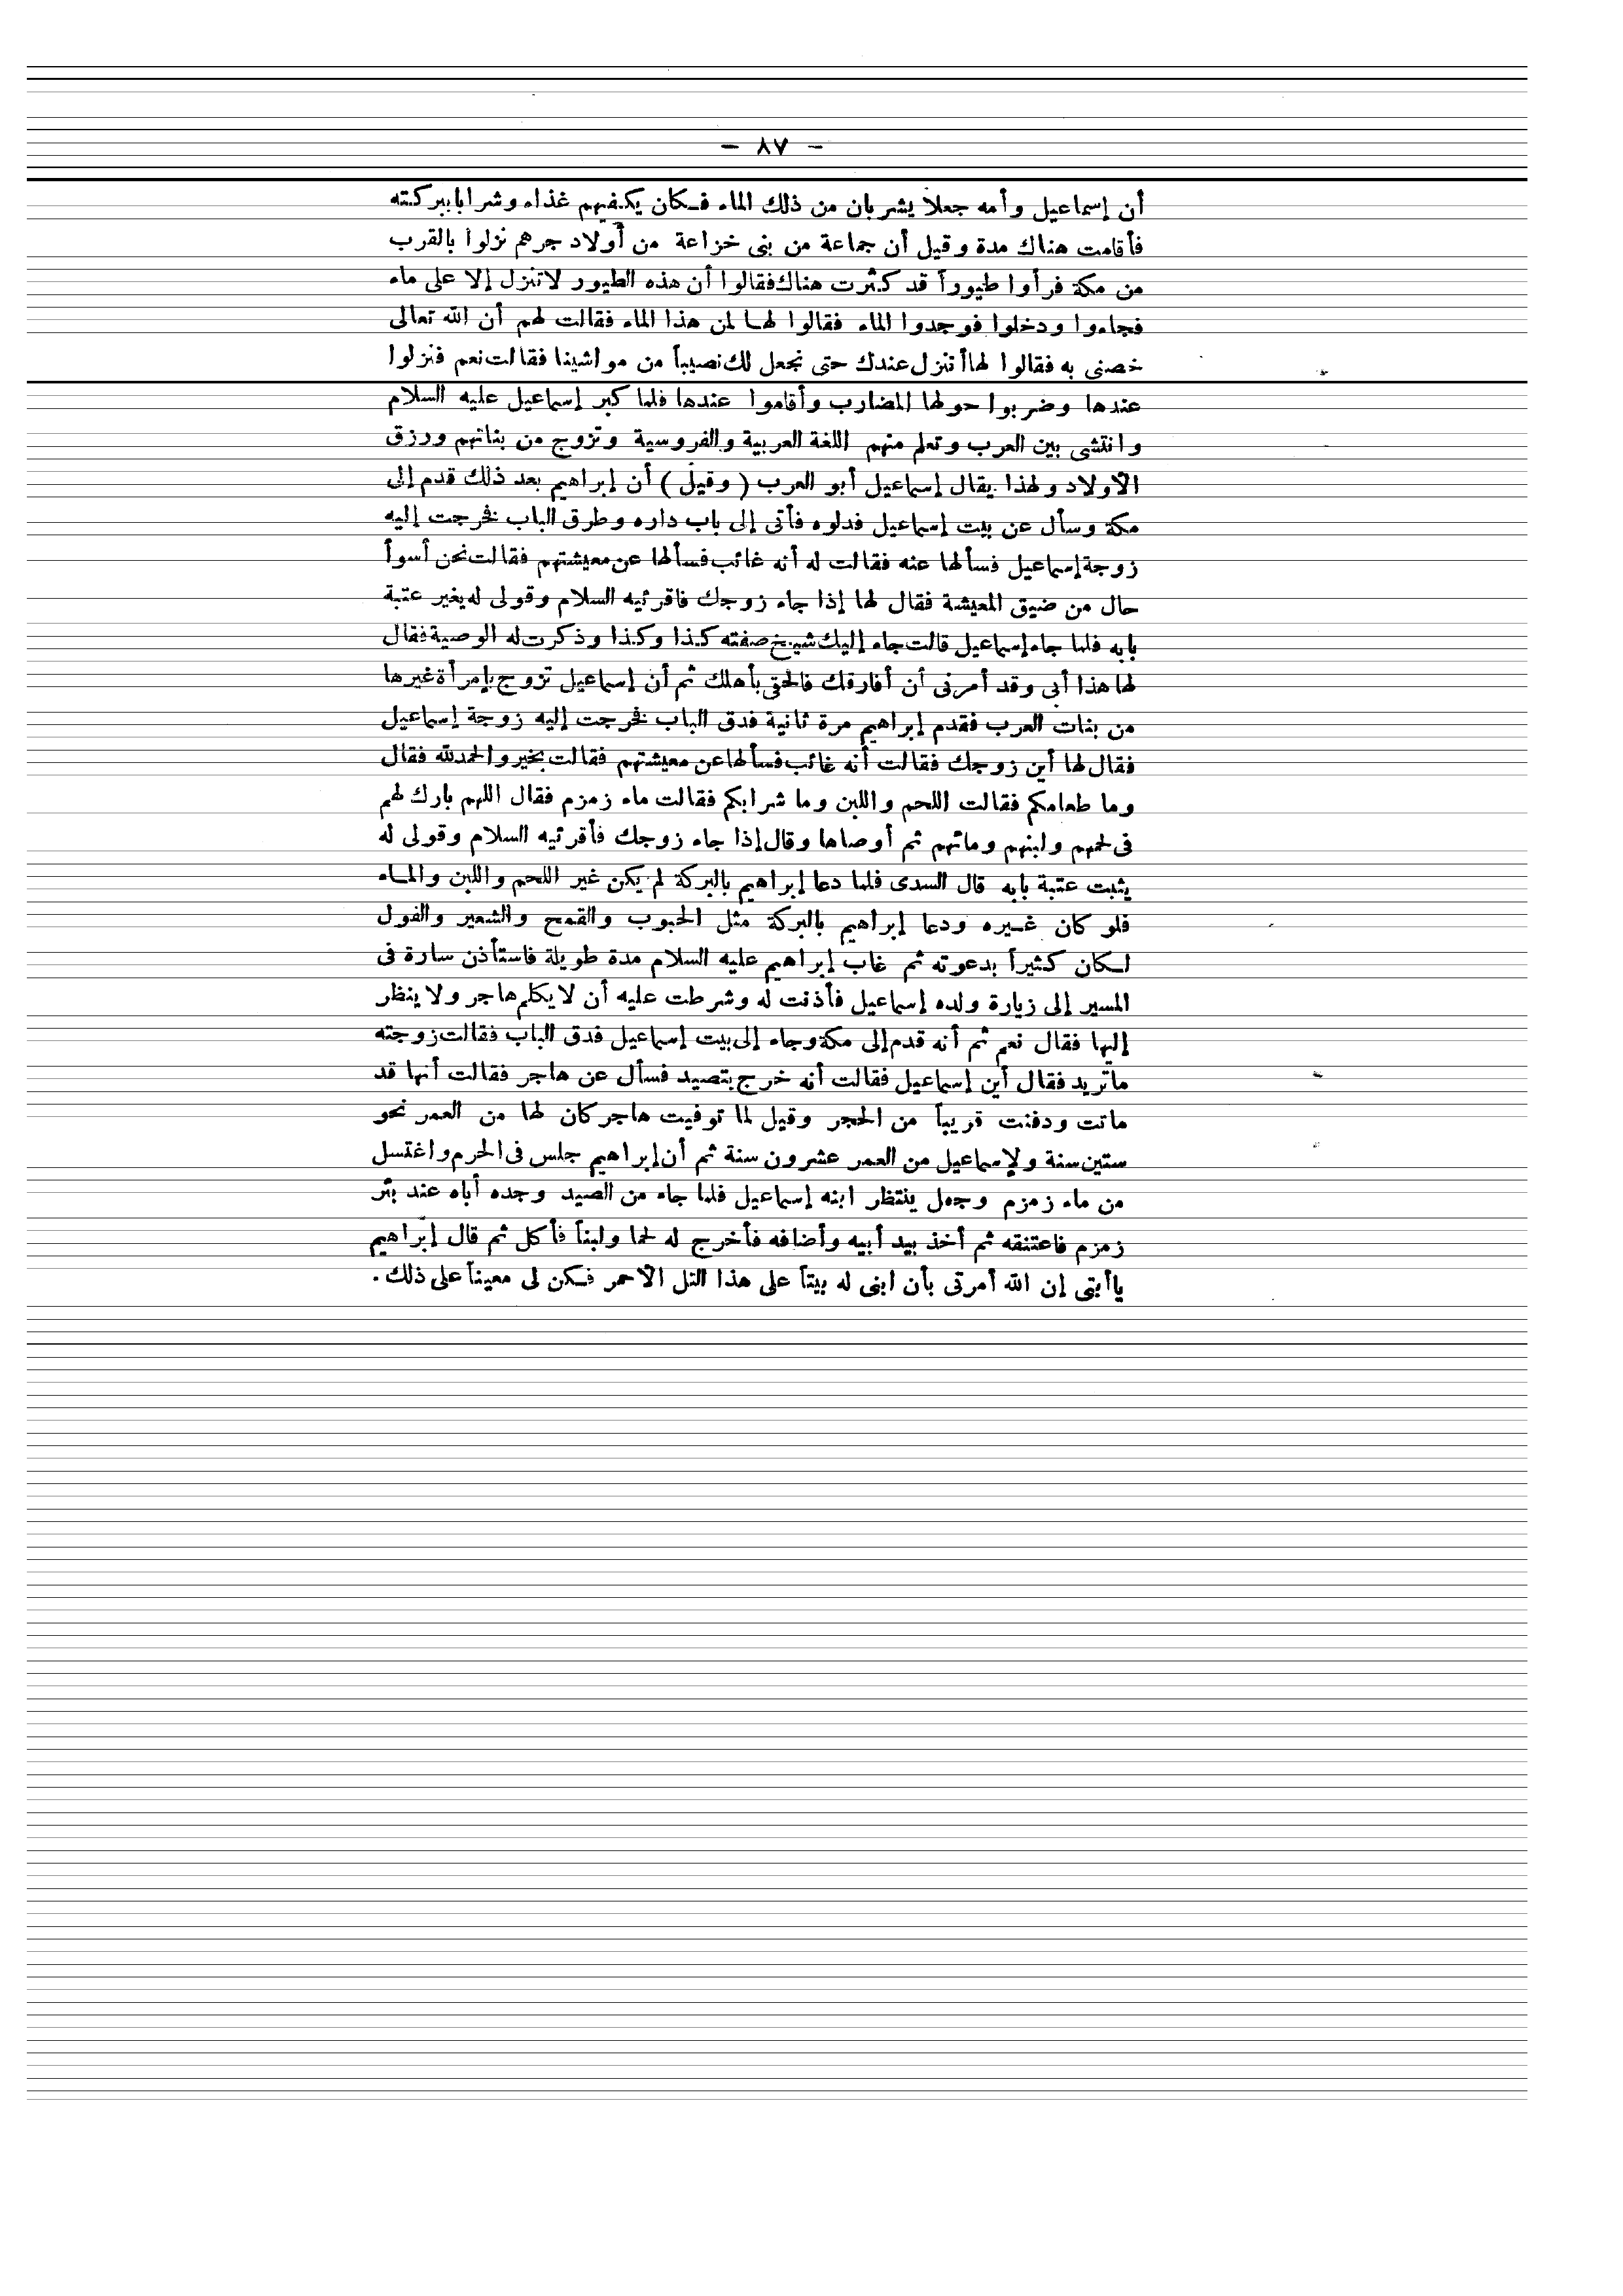 - ٨٧ -
أن إسماعيل وأمه جعلا يشربان من ذلك الماء فكان يكفيهم غذاء وشرابا ببركته
فأقامت هناك مدة وقيل أن جماعة من بنى خزاعة من أولاد جرهم نزلوا بالقرب
من مكة فرأوا طيوراً قد كثرت هناك فقالوا أن هذه الطيور لاتنزل إلا على ماء
فجاءوا ودخلوا فوجدوا الماء فقالوا لها لمن هذا الماء فقالت لهم أن الله تعالى
خصنى به فقالوا لها أتنزل عندك حتى نجعل لك نصيباً من مواشينا فقالت نعم فنزلوا
عندها وضربوا حولها المضارب وأقاموا عندها فلما كبر إسماعيل عليه السلام
وانتشى بين العرب وتعلم منهم اللغة العربية والفروسية وتزوج من بناتهم ورزق
الأولاد ولهذا يقال إسماعيل أبو العرب ( وقيل ) أن إبراهيم بعد ذلك قدم إلى
مكة وسأل عن بيت إسماعيل فدلوه فأتى إلى باب داره وطرق الباب فخرجت إليه
زوجة إسماعيل فسألها عنه فقالت له أنه غائب فسألها عن معيشتهم فقالت نحن أسوأ
حال من ضيق المعيشة فقال لها إذا جاء زوجك فاقرئيه السلام وقولى له يغير عتبة
بابه فلما جاء إسماعيل قالت جاء إليك شيخ صفته كذا وكذا وذكرت له الوصية فقال
لها هذا أبى وقد أمرنى أن أفارقك فالحقى بأهلك ثم أن إسماعيل تزوج بإمرأة غيرها
من بنات العرب فقدم إبراهيم مرة ثانية فدق الباب فخرجت إليه زوجة إسماعيل
فقال لها أين زوجك فقالت أنه غائب فسألها عن معيشتهم فقالت بخير والحمد لله فقال
وما طعامكم فقالت اللحم واللبن وما شرابكم فقالت ماء زمزم فقال اللهم بارك لهم
فى لحمهم ولبنهم ومائهم ثم أوصاها وقال إذا جاء زوجك فأقرئيه السلام وقولى له
يثبت عتبة بابه قال السدى فلما دعا إبراهيم بالبركة لم يكن غير اللحم واللبن والماء
فلو كان غيره ودعا إبراهيم بالبركة مثل الحبوب والقمح والشعير والفول
لكان كثيراً بدعوته ثم غاب إبراهيم عليه السلام مدة طويلة فاستأذن سارة فى
المسير إلى زيارة ولده إسماعيل فأذنت له وشرطت عليه أن لا يكلم هاجر ولا ينظر
إليها فقال نعم ثم أنه قدم إلى مكة وجاء إلى بيت إسماعيل فدق الباب فقالت زوجته
ماتريد فقال أين إسماعيل فقالت أنه خرج يتصيد فسأل عن هاجر فقالت أنها قد
ماتت ودفنت قريباً من الحجر وقيل لما توفيت هاجر كان لها من العمر نحو
ستين سنة ولإسماعيل من العمر عشرون سنة ثم أن إبراهيم جلس فى الحرم واغتسل
من ماء زمزم وجعل ينتظر ابنه إسماعيل فلما جاء من الصيد وجده أباه عند بئر
زمزم فاعتنقه ثم أخذ بيد أبيه وأضافه فأخرج له لحما ولبناً فأكل ثم قال إبراهيم
ياأبتى إن الله أمرتى بأن ابنى له بيتاً على هذا التل الأحمر فكن لى معيناً على ذلك .